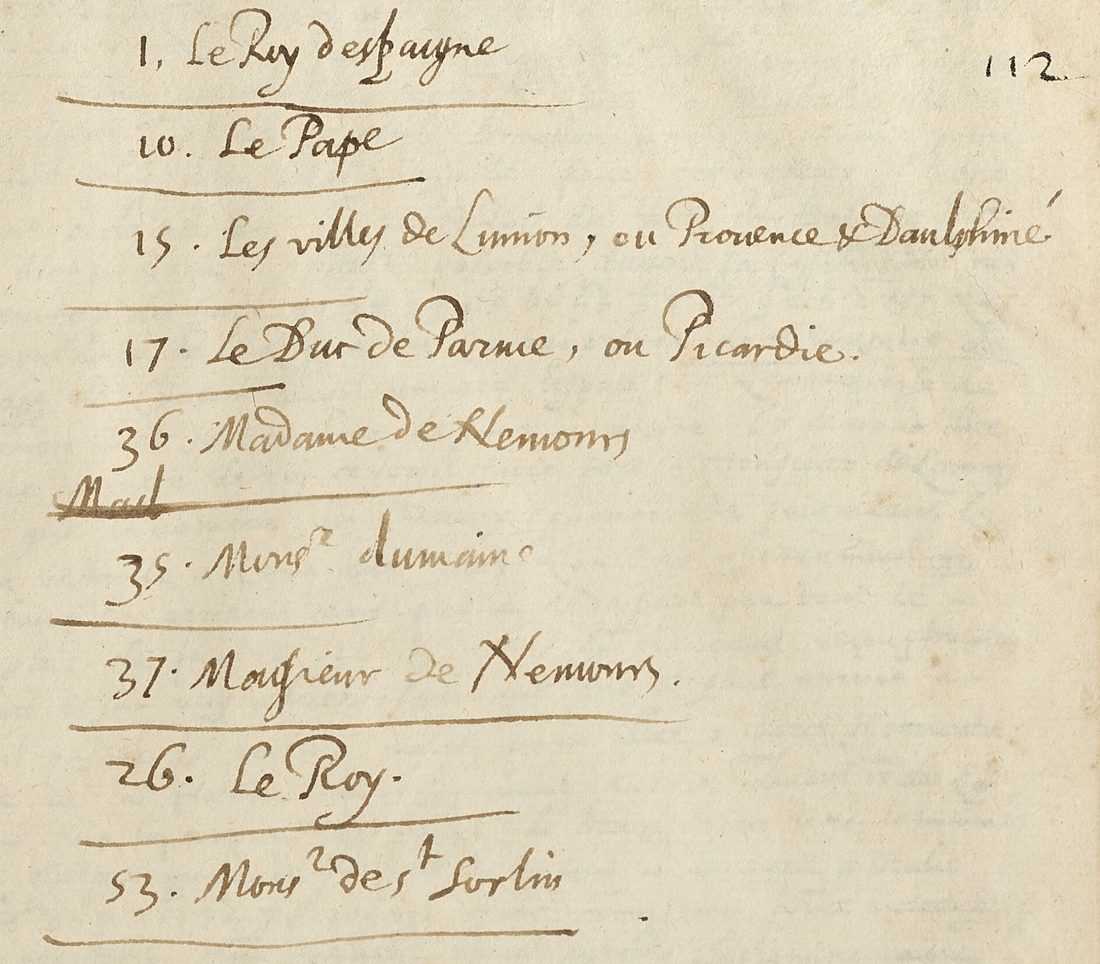 1, Le Roy despaigne
112
10. Le Pape
15. Les villes de Lunion, ou Prouence & Daulphiné
17. Le Duc de Parme, ou Picardie.
36. Madame de Nemours
Mad
35. Monsr dumaine
37. Monsieur de Nemours.
26. Le Roy.
53. Monsr de st Sorlin